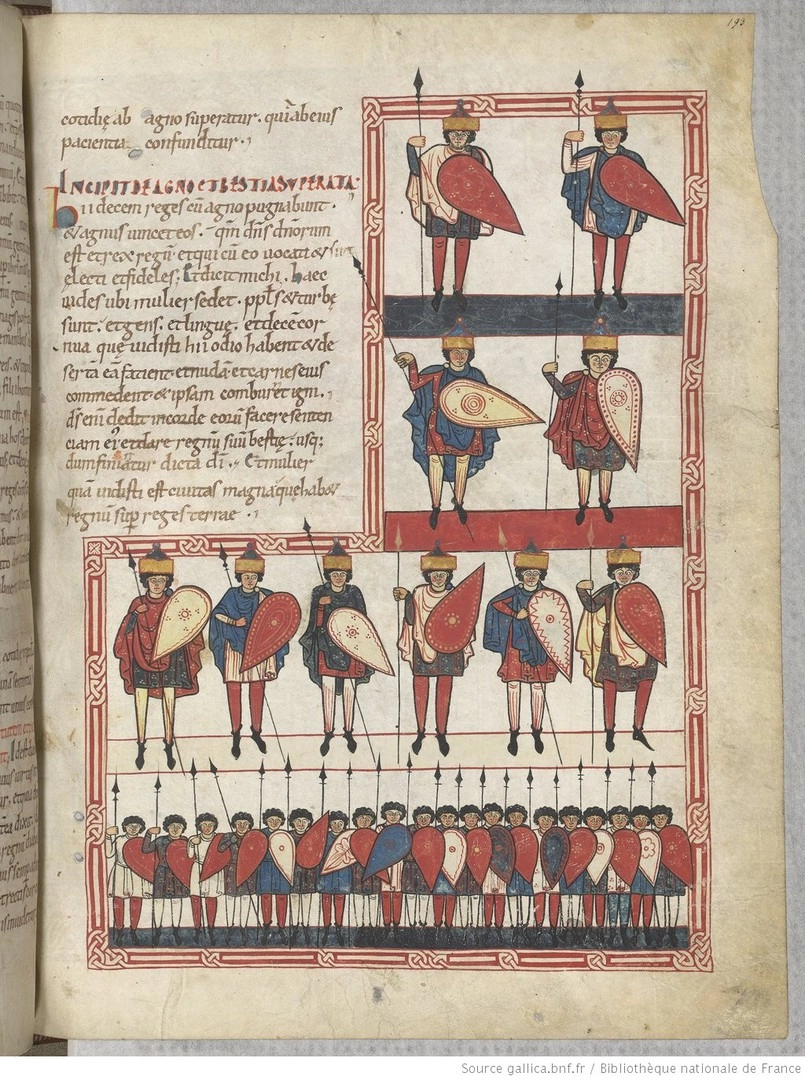 193
cotidię ab agno superatur. quia ab eius
pacientia confunditur.
INCIPIT DE AGNO ET BESTIA SUPERATA.
hii decem reges cū agno pugnabunt.
& agnus uincet eos. qm̄ dn̄s dn̄orum
est et rex regū. et qui cū eo uocati &
electi et fideles. Et dicit michi. haec
uides ubi mulier sedet. ppl̄s & turbę
sunt. et gens. et linguę. et decē cor
nua quę uidisti hii odio habent & de
sertā eā facient et nudā et carnes eius
commedent & ipsam comburēt igni.
dS enī dedit in corde eorū facere senten
ciam ei' et dare regnū suū bestię. usq:
dum finiātur dicta dī. Et mulier
quā uidisti est ciuitas magna quę hab&
regnū sup̄ reges terrae.
Source gallica.bnf.fr / Bibliothèque nationale de France